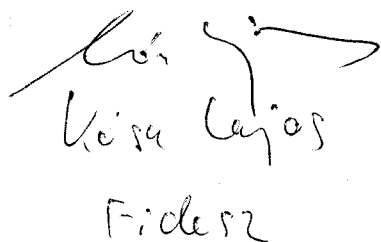 Kósa Lajos
Fidesz